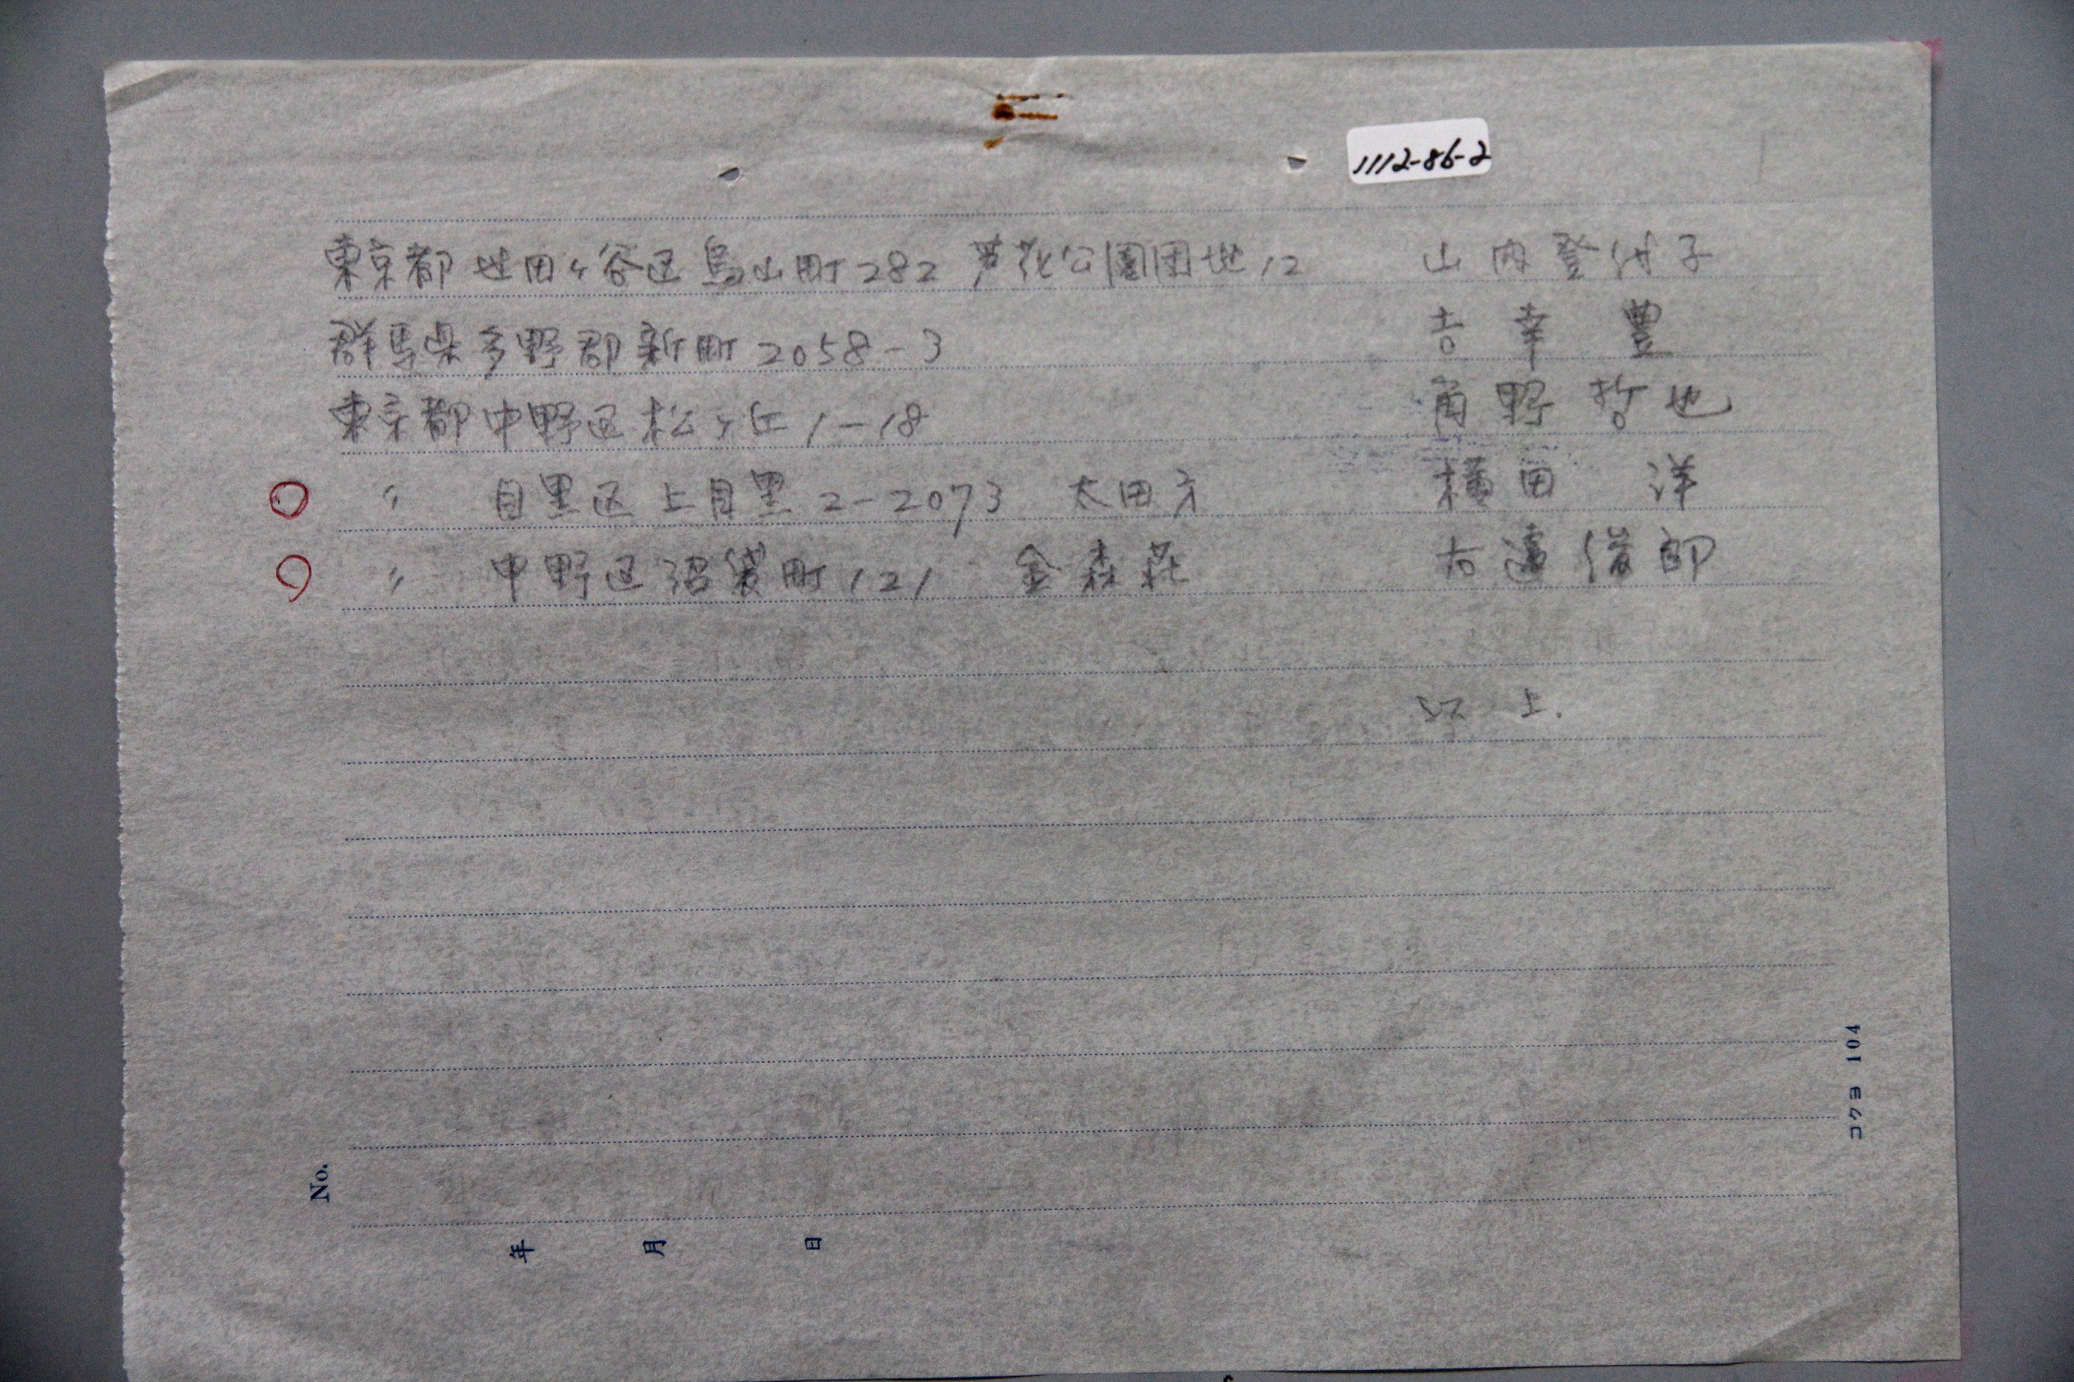 1112-86-2
東京都 世田ヶ谷区烏山町282 芦花公園団地12 山内登代子
群馬県多野郡新町2058-3 吉幸 豊
東京都中野区松ヶ丘1-18 角野哲也
○ 〃 目黒区上目黒2-2073 太田方 横田 洋
○ 〃 中野区沼袋町121 金森荘 右遠俊郎
以上.
コクヨ 104
No.
年 月 日